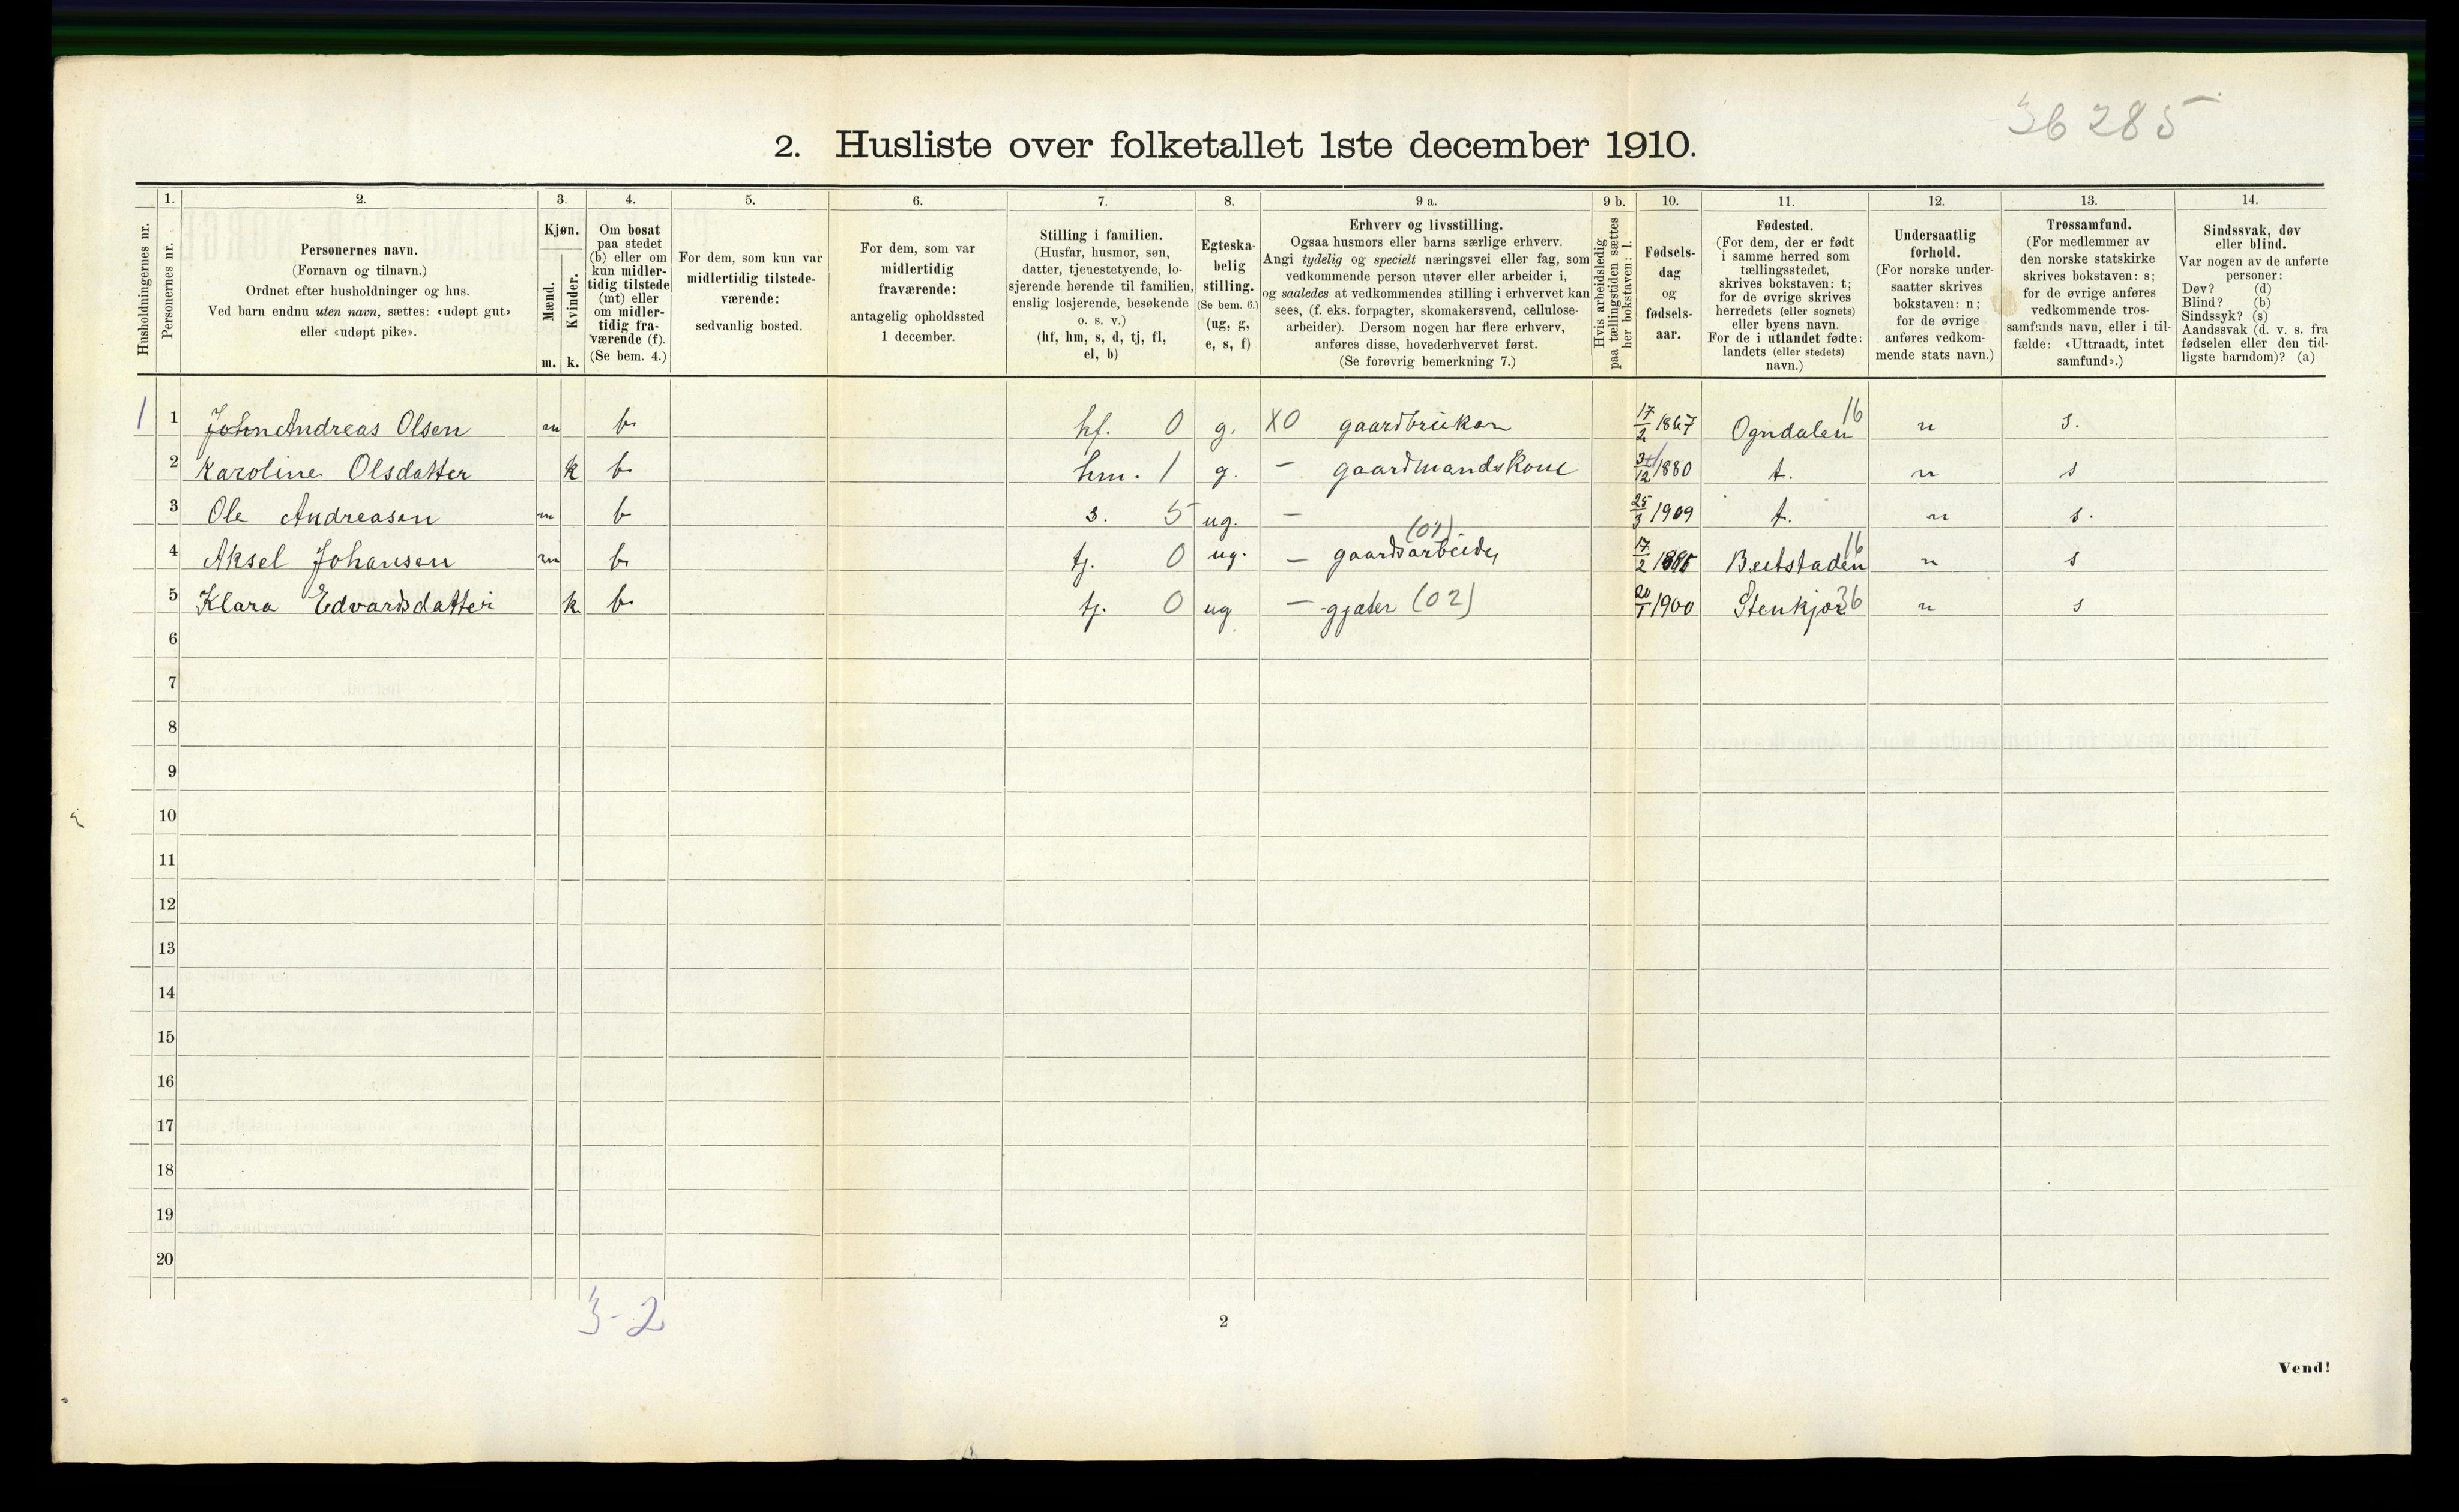 36 285
2. Husliste over folketallet 1ste december 1910.
1. 2. 3. 4. 5. 6. 7. 8. 9 a. 9 b. 10. 11. 12. 13. 14.
Husholdningernes nr.
Personernes nr.
Personernes navn.
(Fornavn og tilnavn.)
Ordnet efter husholdninger og hus.
Ved barn endnu uten navn, sættes: «udøpt gut»
eller «udøpt pike».
Kjøn.
Mænd.
Kvinder.
m. k.
Om bosat
paa stedet
(b) eller om
kun midler-
tidig tilstede
(mt) eller
om midler-
tidig fra-
værende (f).
(Se bem. 4.)
For dem, som kun var
midlertidig tilstede-
værende:
sedvanlig bosted.
For dem, som var
midlertidig
fraværende:
antagelig opholdssted
1 december.
Stilling i familien.
(Husfar, husmor, søn,
datter, tjenestetyende, lo-
sjerende hørende til familien,
enslig losjerende, besøkende
o. s. v.)
(hf, hm, s, d, tj, fl,
el, b)
Egteska-
belig
stilling.
(Se bem. 6.)
(ug, g,
e, s, f)
Erhverv og livsstilling.
Ogsaa husmors eller barns særlige erhverv.
Angi tydelig og specielt næringsvei eller fag, som
vedkommende person utøver eller arbeider i,
og saaledes at vedkommendes stilling i erhvervet kan
sees, (f. eks. forpagter, skomakersvend, cellulose-
arbeider). Dersom nogen har flere erhverv,
anføres disse, hovederhvervet først.
(Se forøvrig bemerkning 7.)
Hvis arbeidsledig
paa tællingstiden sættes
her bokstaven: l.
Fødsels-
dag
og
fødsels-
aar.
Fødested.
(For dem, der er født
i samme herred som
tællingsstedet,
skrives bokstaven: t;
for de øvrige skrives
herredets (eller sognets)
eller byens navn.
For de i utlandet fødte:
landets (eller stedets)
navn.)
Undersaatlig
forhold.
(For norske under-
saatter skrives
bokstaven: n;
for de øvrige
anføres vedkom-
mende stats navn.)
Trossamfund.
(For medlemmer av
den norske statskirke
skrives bokstaven: s;
for de øvrige anføres
vedkommende tros-
samfunds navn, eller i til-
fælde: «Uttraadt, intet
samfund».)
Sindssvak, døv
eller blind.
Var nogen av de anførte
personer:
Døv? (d)
Blind? (b)
Sindssyk? (s)
Aandssvak (d. v. s. fra
fødselen eller den tid-
ligste barndom)? (a)
1 1 John Andreas Olsen m b. hf. 0 g. X0 gaardbruker 17/2 1867 Ogndalen 16 n s.
2 Karoline Olsdatter k b hm. 1 g. - gaardmandskone 31/12 1880 t. n s
3 Ole Andreasen m b s. 5 ug. - 25/3 1909 t. n s.
4 Aksel Johansen m b tj. 0 ug. - gaardsarbeider 17/2 Beitstaden 16 n s
5 Klara Edvardsdatter k b. tj. 0 ug - gjæter (02) 20/1 1900 Stenkjær 36 n s
6
7
8
9
10
11
12
13
14
15
16
17
18
19
20
3-2
2
Vend!